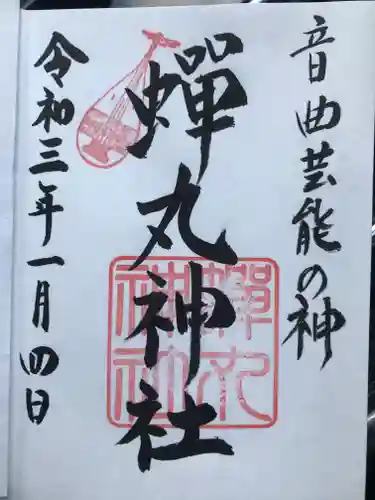 音曲芸能の神
蟬丸神社
令和三年一月四日
蟬丸神社